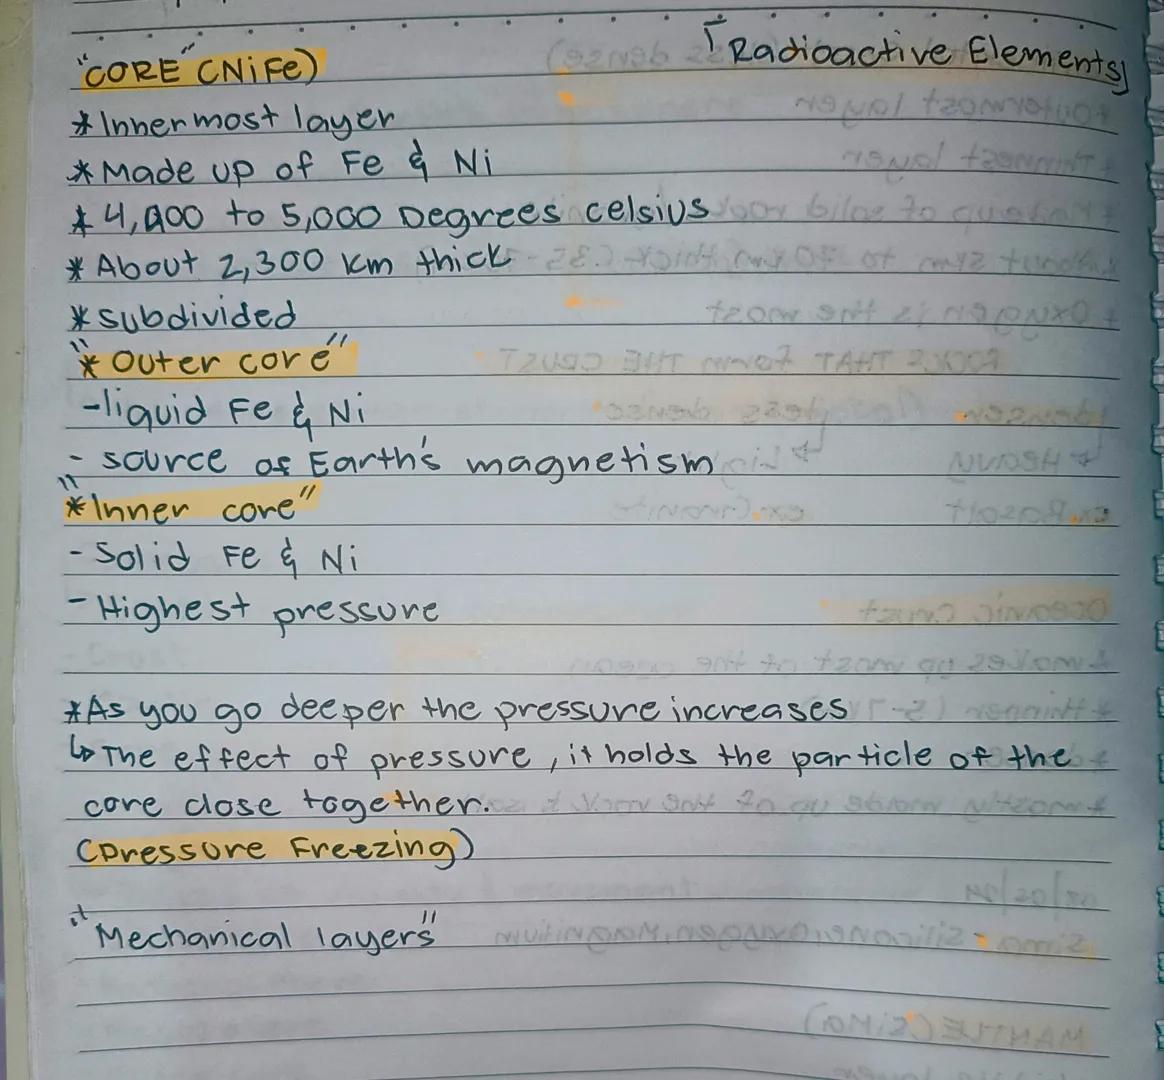 "CORE" (NiFe) [Radioactive Elements]
* Innermost layer
* Made up of Fe & Ni
* 4,000 to 5,000 Degrees celsius
* About 2,300 km thick
* subdivided
"* Outer core"
- liquid Fe & Ni
- source of Earth's magnetism
"* Inner core"
- Solid Fe & Ni
- Highest pressure
* As you go deeper the pressure increases
↳ The effect of pressure, it holds the particle of the
core close together.
(Pressure Freezing)
"Mechanical layers"